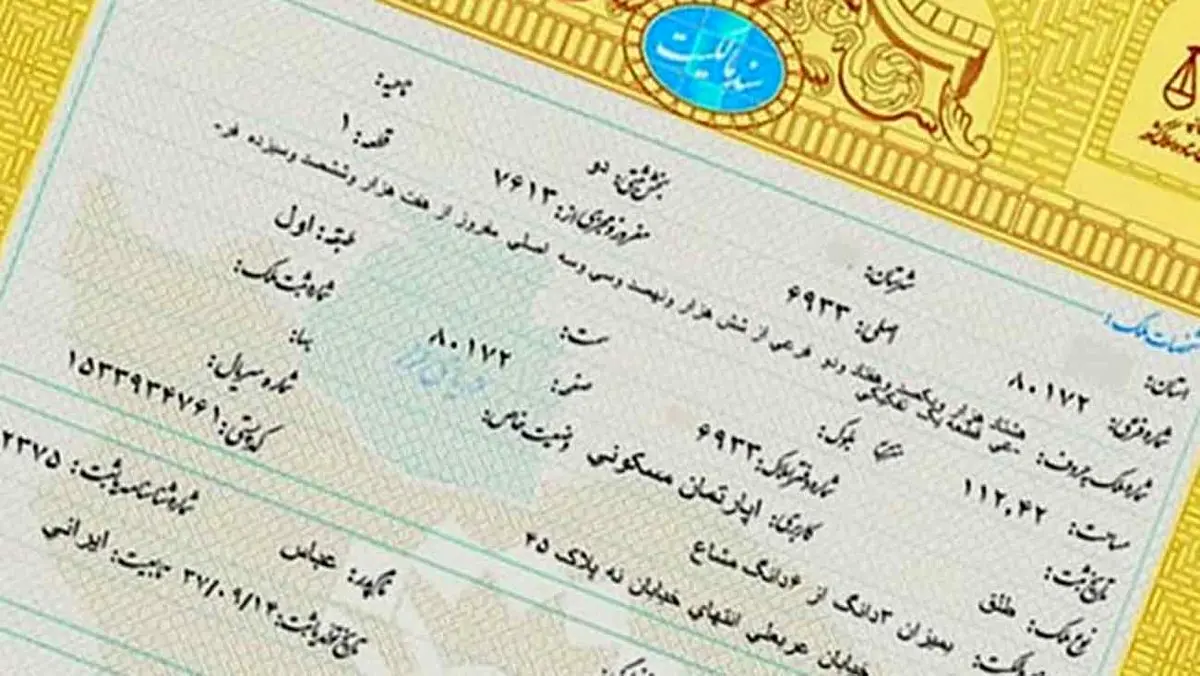 سند مالکیت
مشخصات ملک:
استان: شهرستان: بخش ثبتی: دو ناحیه:
شماره فرعی: ۸۰۱۷۲ اصلی: ۶۹۳۳ مفروز و مجزی از: ۷۶۱۳ قطعه: ۱
شماره ملک بحروف: هشتاد هزار و یکصد و هفتاد و دو فرعی از شش هزار و نهصد و سی و سه اصلی مفروز از هفت هزار و ششصد و سیزده فر-
-عی قطعه یک تفکیکی
مساحت: ۱۱۲,۴۲ بلوک: سمت: طبقه: اول
تاریخ ثبت: شماره دفتر املاک: ۶۹۳۳ صفحه: ۸۰۱۷۲ شماره ثبت ملک:
نوع ملک: طلق کاربری: آپارتمان مسکونی وضعیت خاص: بهاء:
بمیزان ۳دانگ از ۶دانگ مشاع شماره سریال:
خیابان عربعلی انتهای خیابان نه پلاک ۴۵ کد پستی: ۱۵۳۳۹۳۴۷۶۱
نام پدر: عباس شماره شناسنامه یا ثبت: ۲۳۷۵
تاریخ تولد یا ثبت: ۳۷/۰۹/۱۴ تابعیت: ایرانی